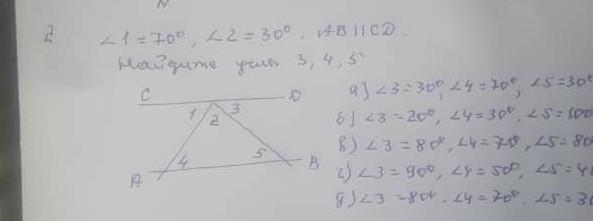 2. ∠1=70°, ∠2=30°. AB||CD.
Найдите углы 3, 4, 5
C D
1 2 3
4 5
A B
а) ∠3=30°, ∠4=70°, ∠5=30°
б) ∠3=20°, ∠4=30°, ∠5=100
в) ∠3=80°, ∠4=70°, ∠5=80
г) ∠3=90°, ∠4=50°, ∠5=4
д) ∠3=80°. ∠4=70°. ∠5=3